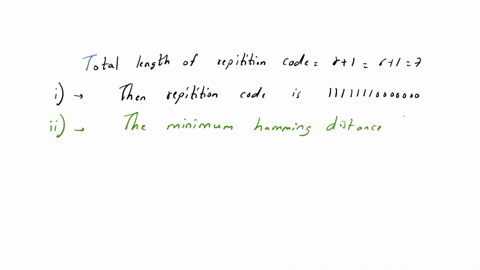 Total length of repitition code = r+1 = 6+1 = 7
i) → Then repitition code is 11111110000000
ii) → The minimum hamming distance